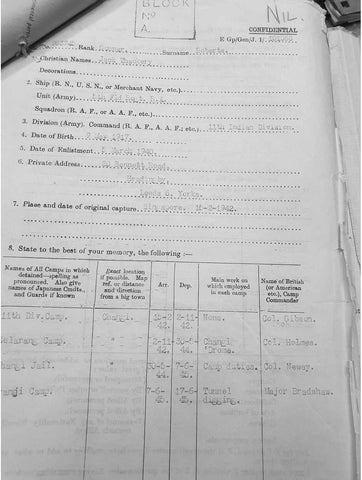 BLOCK
No
A.
NIL.
CONFIDENTIAL
E Gp/Gen/J. 1/
Rank Gunner. Surname Roberts.
Christian Names
Decorations
2. Ship (R. N., U. S. N., or Merchant Navy, etc.)
Unit (Army)
Squadron (R. A. F., or A. A. F., etc.)
3. Division (Army). Command (R. A. F., A. A. F.; etc.) 11th Indian Division.
4. Date of Birth 1917.
5. Date of Enlistment March 1940.
6. Private Address Road,
Bramley,
Leeds Yorks.
7. Place and date of original capture. Singapore. 15-2-1942.
8. State to the best of your memory, the following :—
Names of All Camps in which detained—spelling as pronounced. Also give names of Japanese Cmdts., and Guards if known
Exact location if possible. Map ref. or distance and direction from a big town
Arr.
Dep.
Main work on which employed in each camp
Name of British (or American etc.), Camp Commander
11th Div. Camp. Changi. 42. 42. None. Col. Gibson.
Selarang Camp. " 2-11 42. 44. Changi 'Drome. Col. Holmes.
Changi Jail. 44. 7-6 45. Camp duties. Col. Newey.
Kranji Camp. 7-6 45. 45. Tunnel digging. Major Bradshaw.